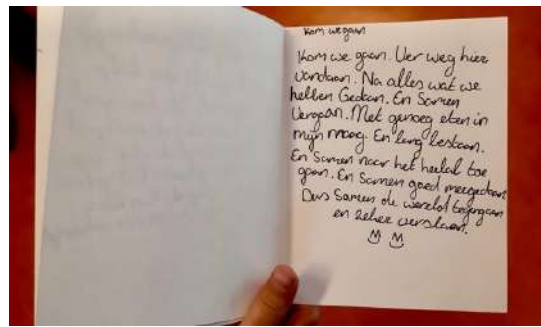 Kom we gaan
Kom we gaan. Ver weg hier
vandaan. Na alles wat we
hebben Gedaan. En Samen
Vergaan. Met genoeg eten in
mijn maag. En lang bestaan.
En Samen naar het heelal toe
gaan. En Samen goed meegedaan
Dus Samen de wereld tegengaan
en zeker verslaan.